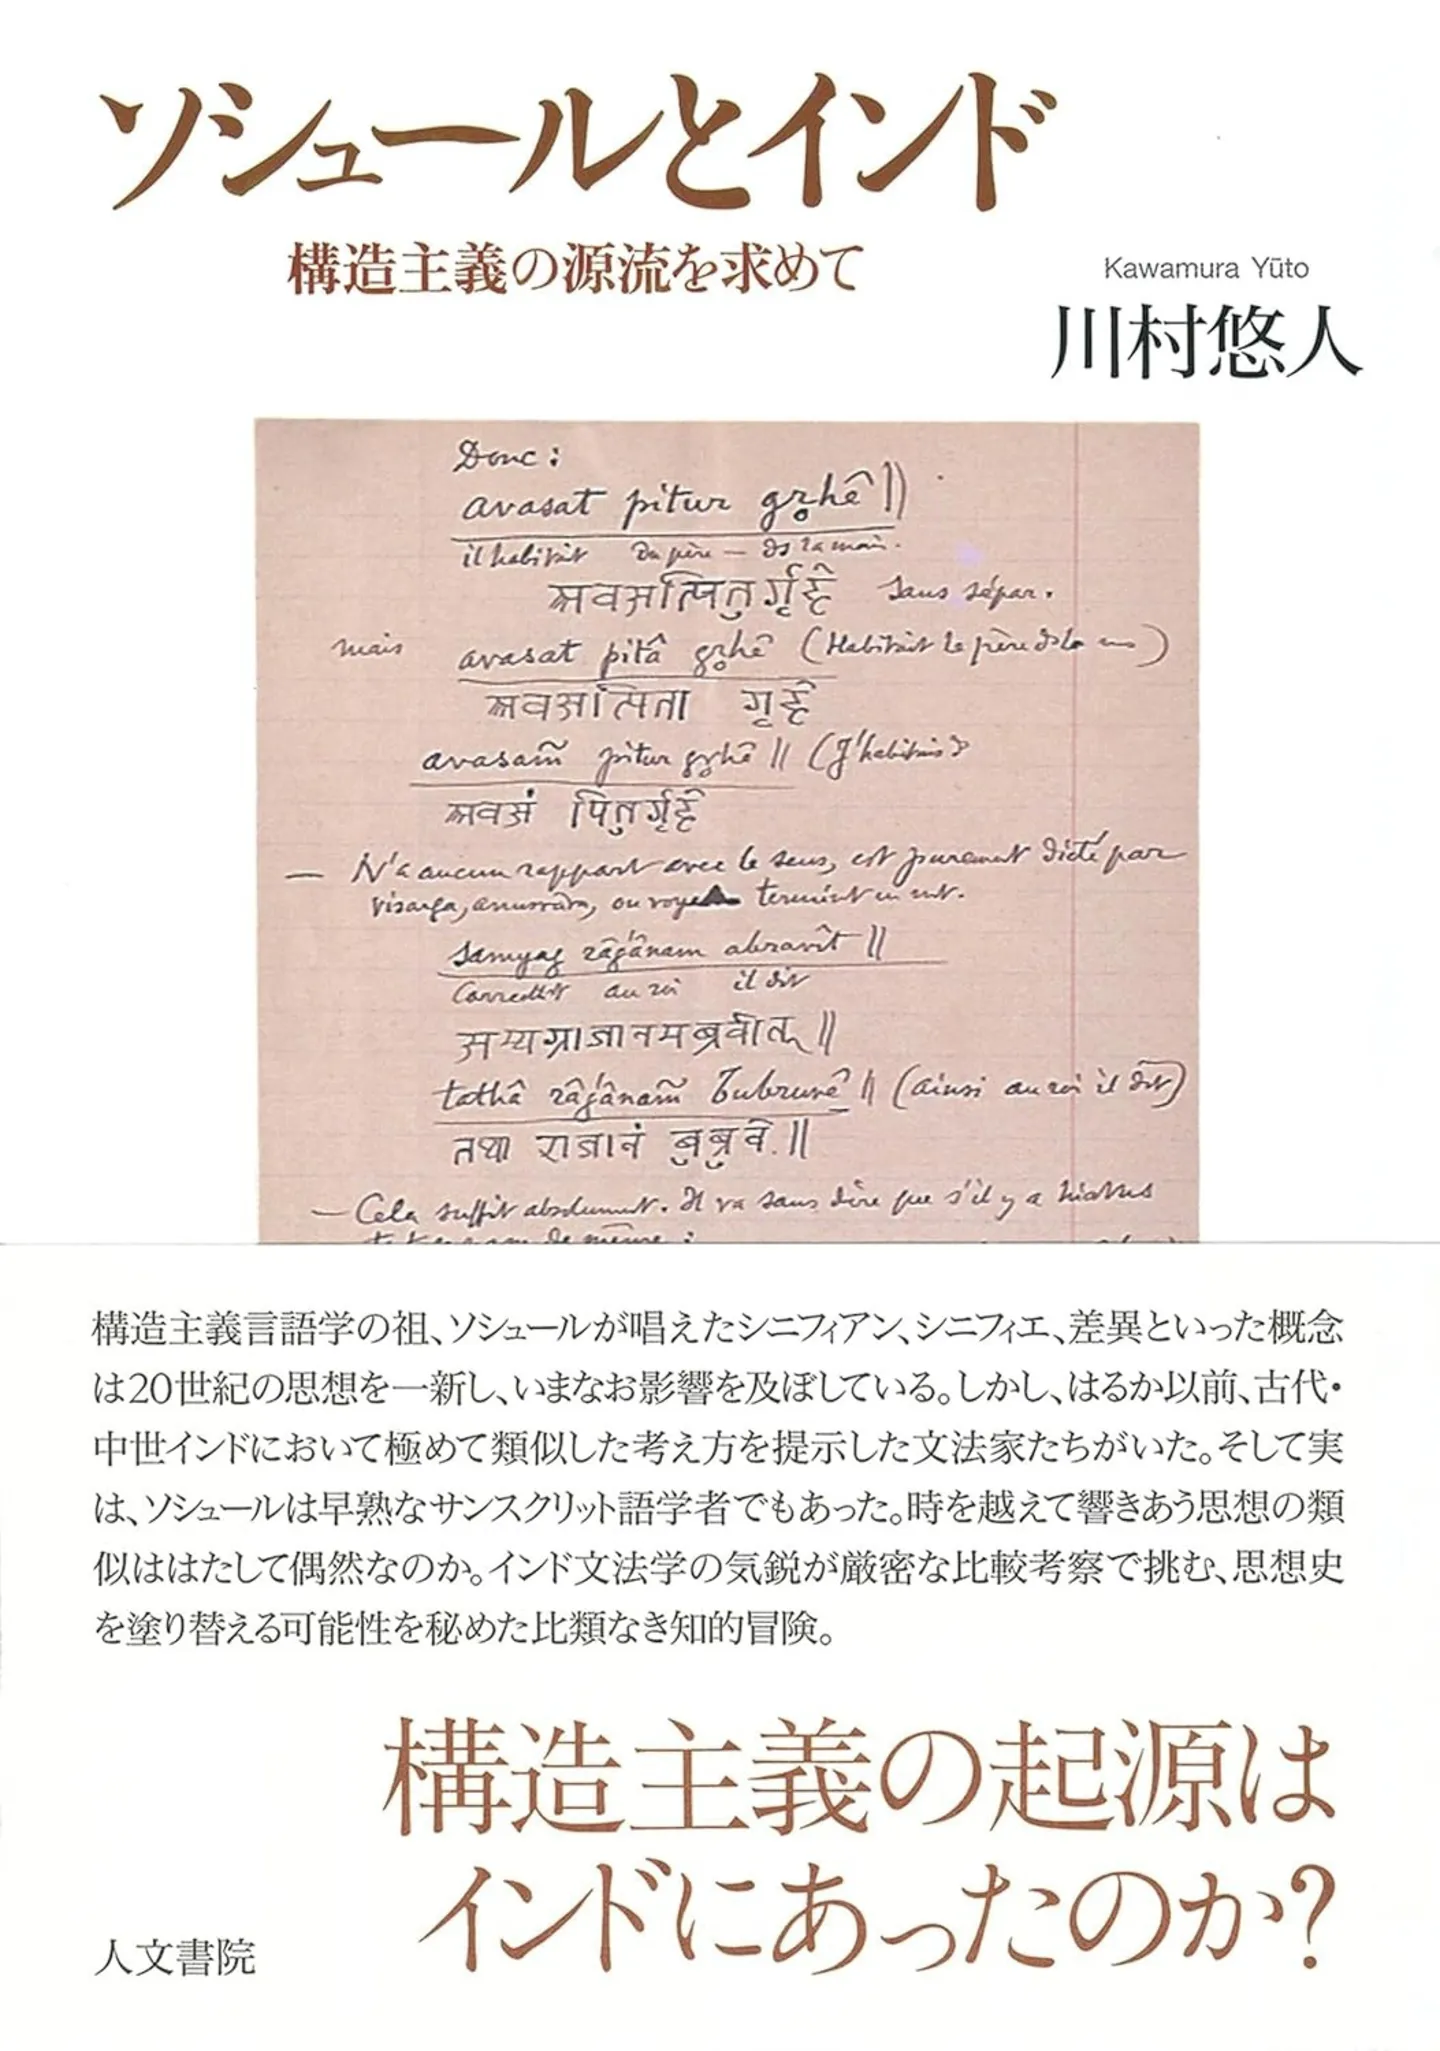 ソシュールとインド
構造主義の源流を求めて
Kawamura Yūto
川村悠人
Donc :
avasat pitur gr̥hê ||
il habitait du père — ds la mais.
अवसत्पितुर्गृहे sans sépar.
mais avasat pitâ gr̥hê (Habitait le père ds la)
अवसत्पिता गृहे
avasam̃ pitur gr̥hê || (J'habitais
अवसं पितुर्गृहे
— N'a aucun rapport avec le sens, est purement dicté par
visarga, anusvâra, ou voyelle terminant un mt.
samyag râǵânam abravît ||
Correctt au roi il dit
सम्यग्राजानमब्रवीत् ||
tathâ râǵânam̃ bubruvê || (ainsi au roi il dit)
तथा राजानं बुब्रुवे ||
— Cela suffit absolument. Il va sans dire que s'il y a hiatus
de même :
構造主義言語学の祖、ソシュールが唱えたシニフィアン、シニフィエ、差異といった概念
は20世紀の思想を一新し、いまなお影響を及ぼしている。しかし、はるか以前、古代・
中世インドにおいて極めて類似した考え方を提示した文法家たちがいた。そして実
は、ソシュールは早熟なサンスクリット語学者でもあった。時を越えて響きあう思想の類
似ははたして偶然なのか。インド文法学の気鋭が厳密な比較考察で挑む、思想史
を塗り替える可能性を秘めた比類なき知的冒険。
構造主義の起源は
インドにあったのか?
人文書院